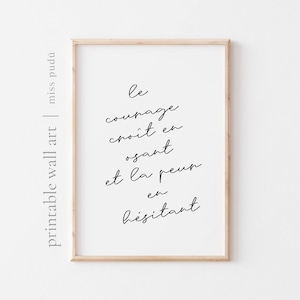 le
courage
croît en
osant
et la peur
en
hésitant
printable wall art | miss pudú